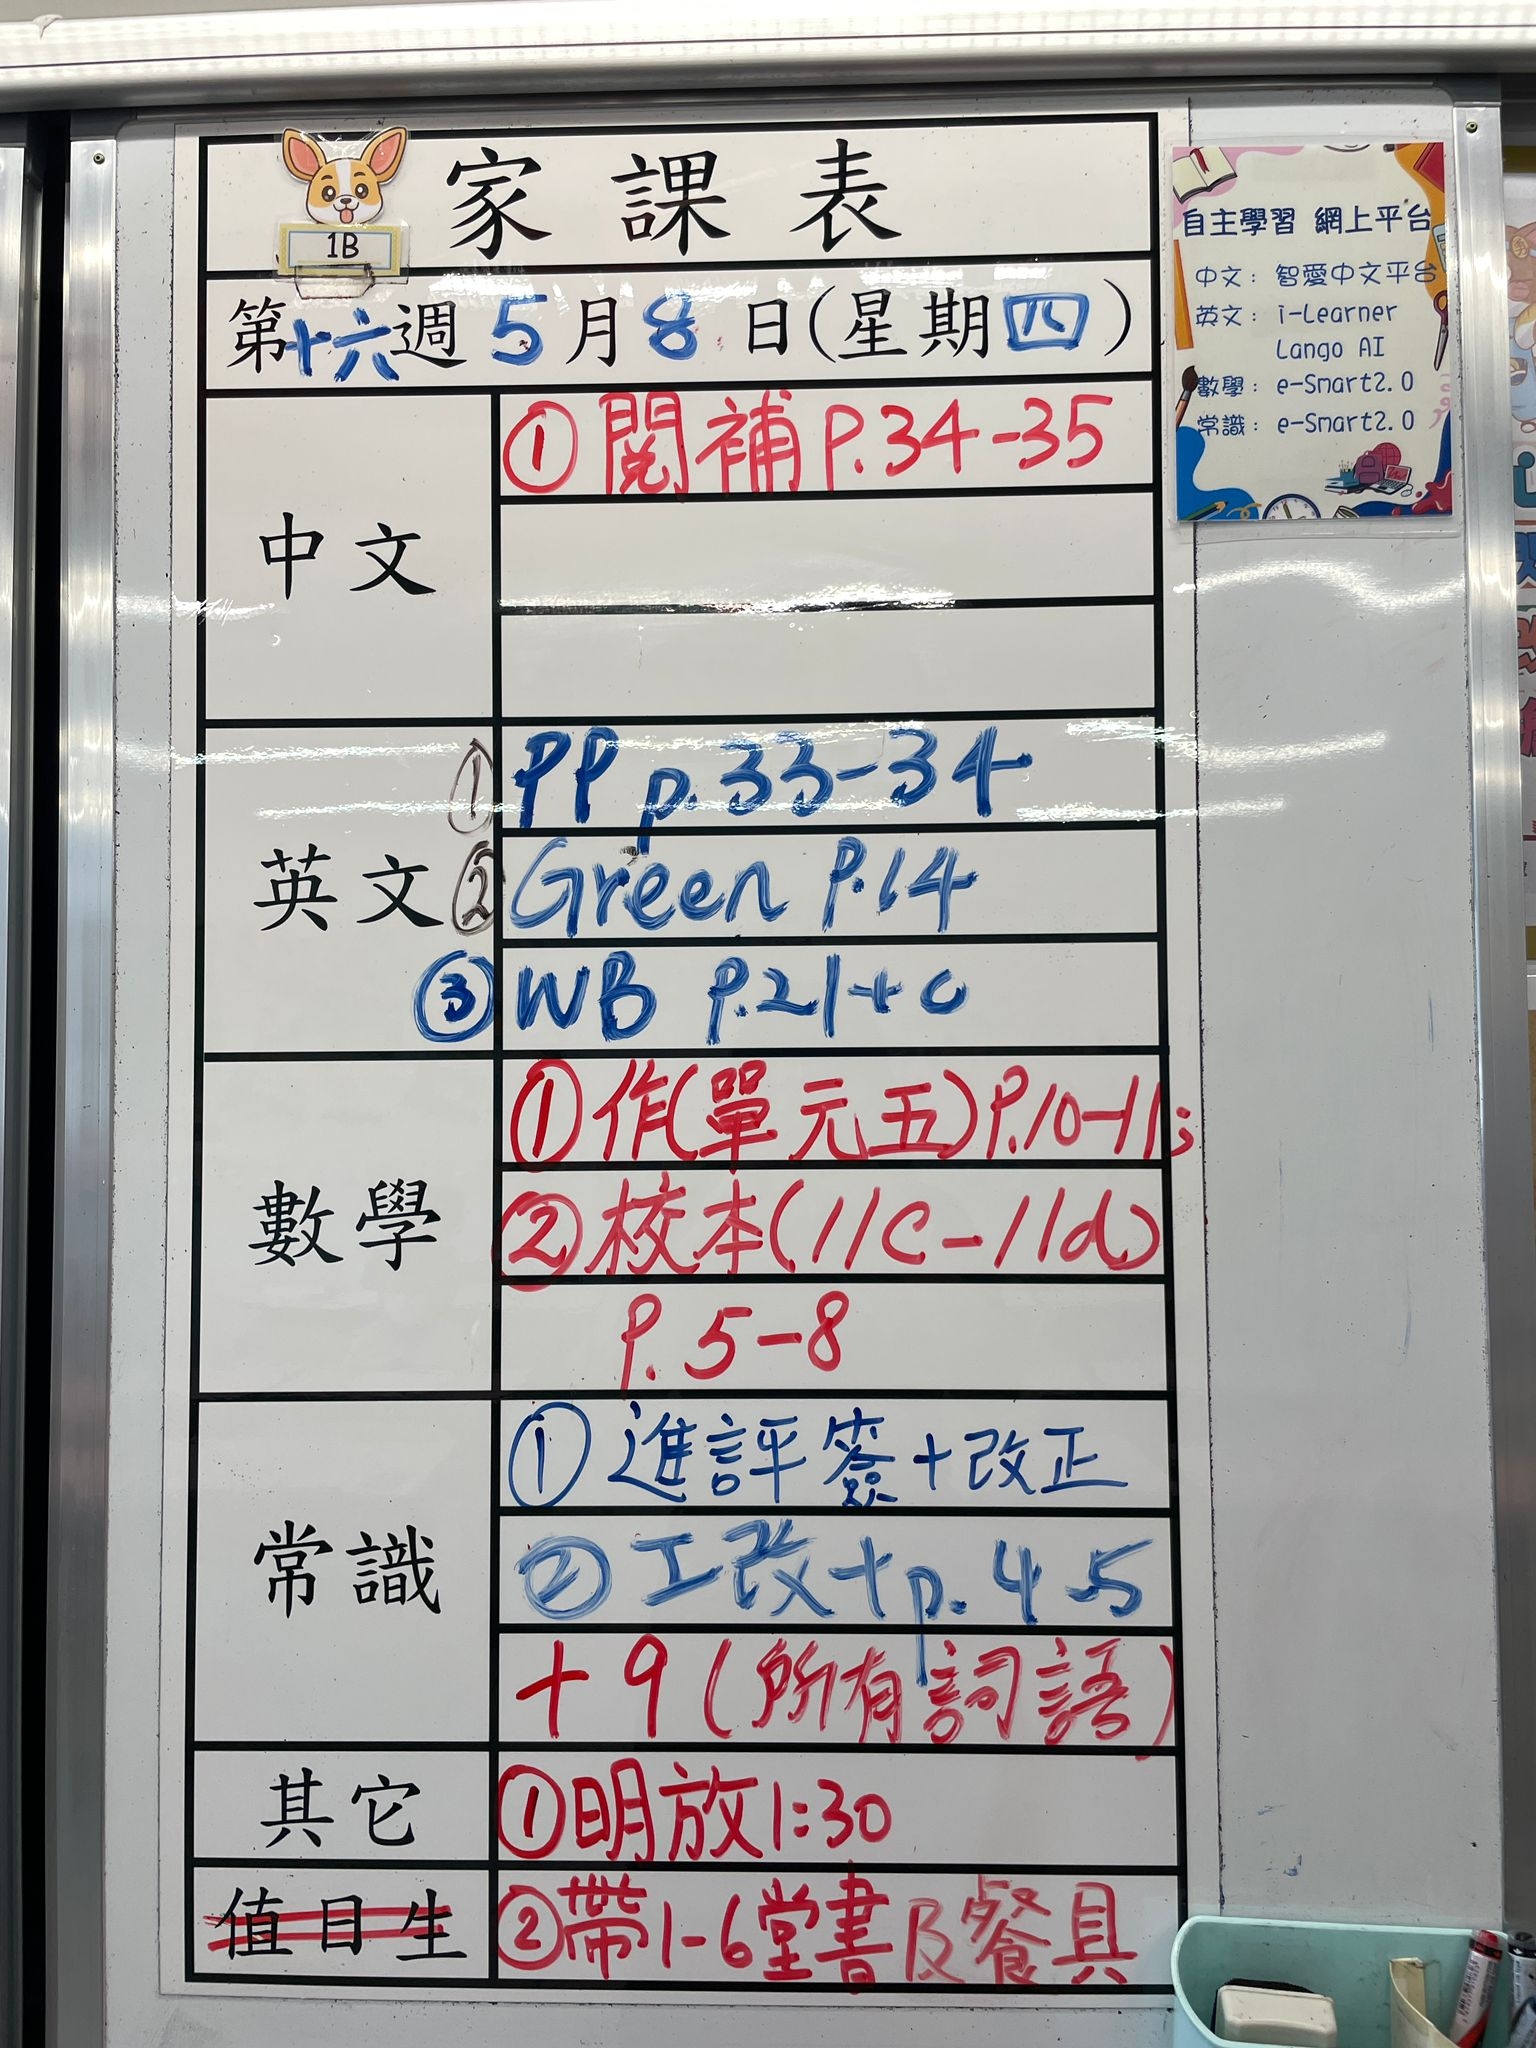 家課表
1B
第十六週5月8日(星期四)
中文
① 閱補 P.34-35
英文
① PP p.33-34
② Green P.14
③ WB P.21+c
數學
① 作(單元五)P.10-11;
② 校本(11c-11d)
P.5-8
常識
① 進評簽+改正
② 工改+p.4-5
+9(所有詞語)
其它
① 明放1:30
值日生
② 帶1-6堂書及餐具
自主學習 網上平台
中文: 智愛中文平台
英文: i-Learner
Lango AI
數學: e-Smart2.0
常識: e-Smart2.0